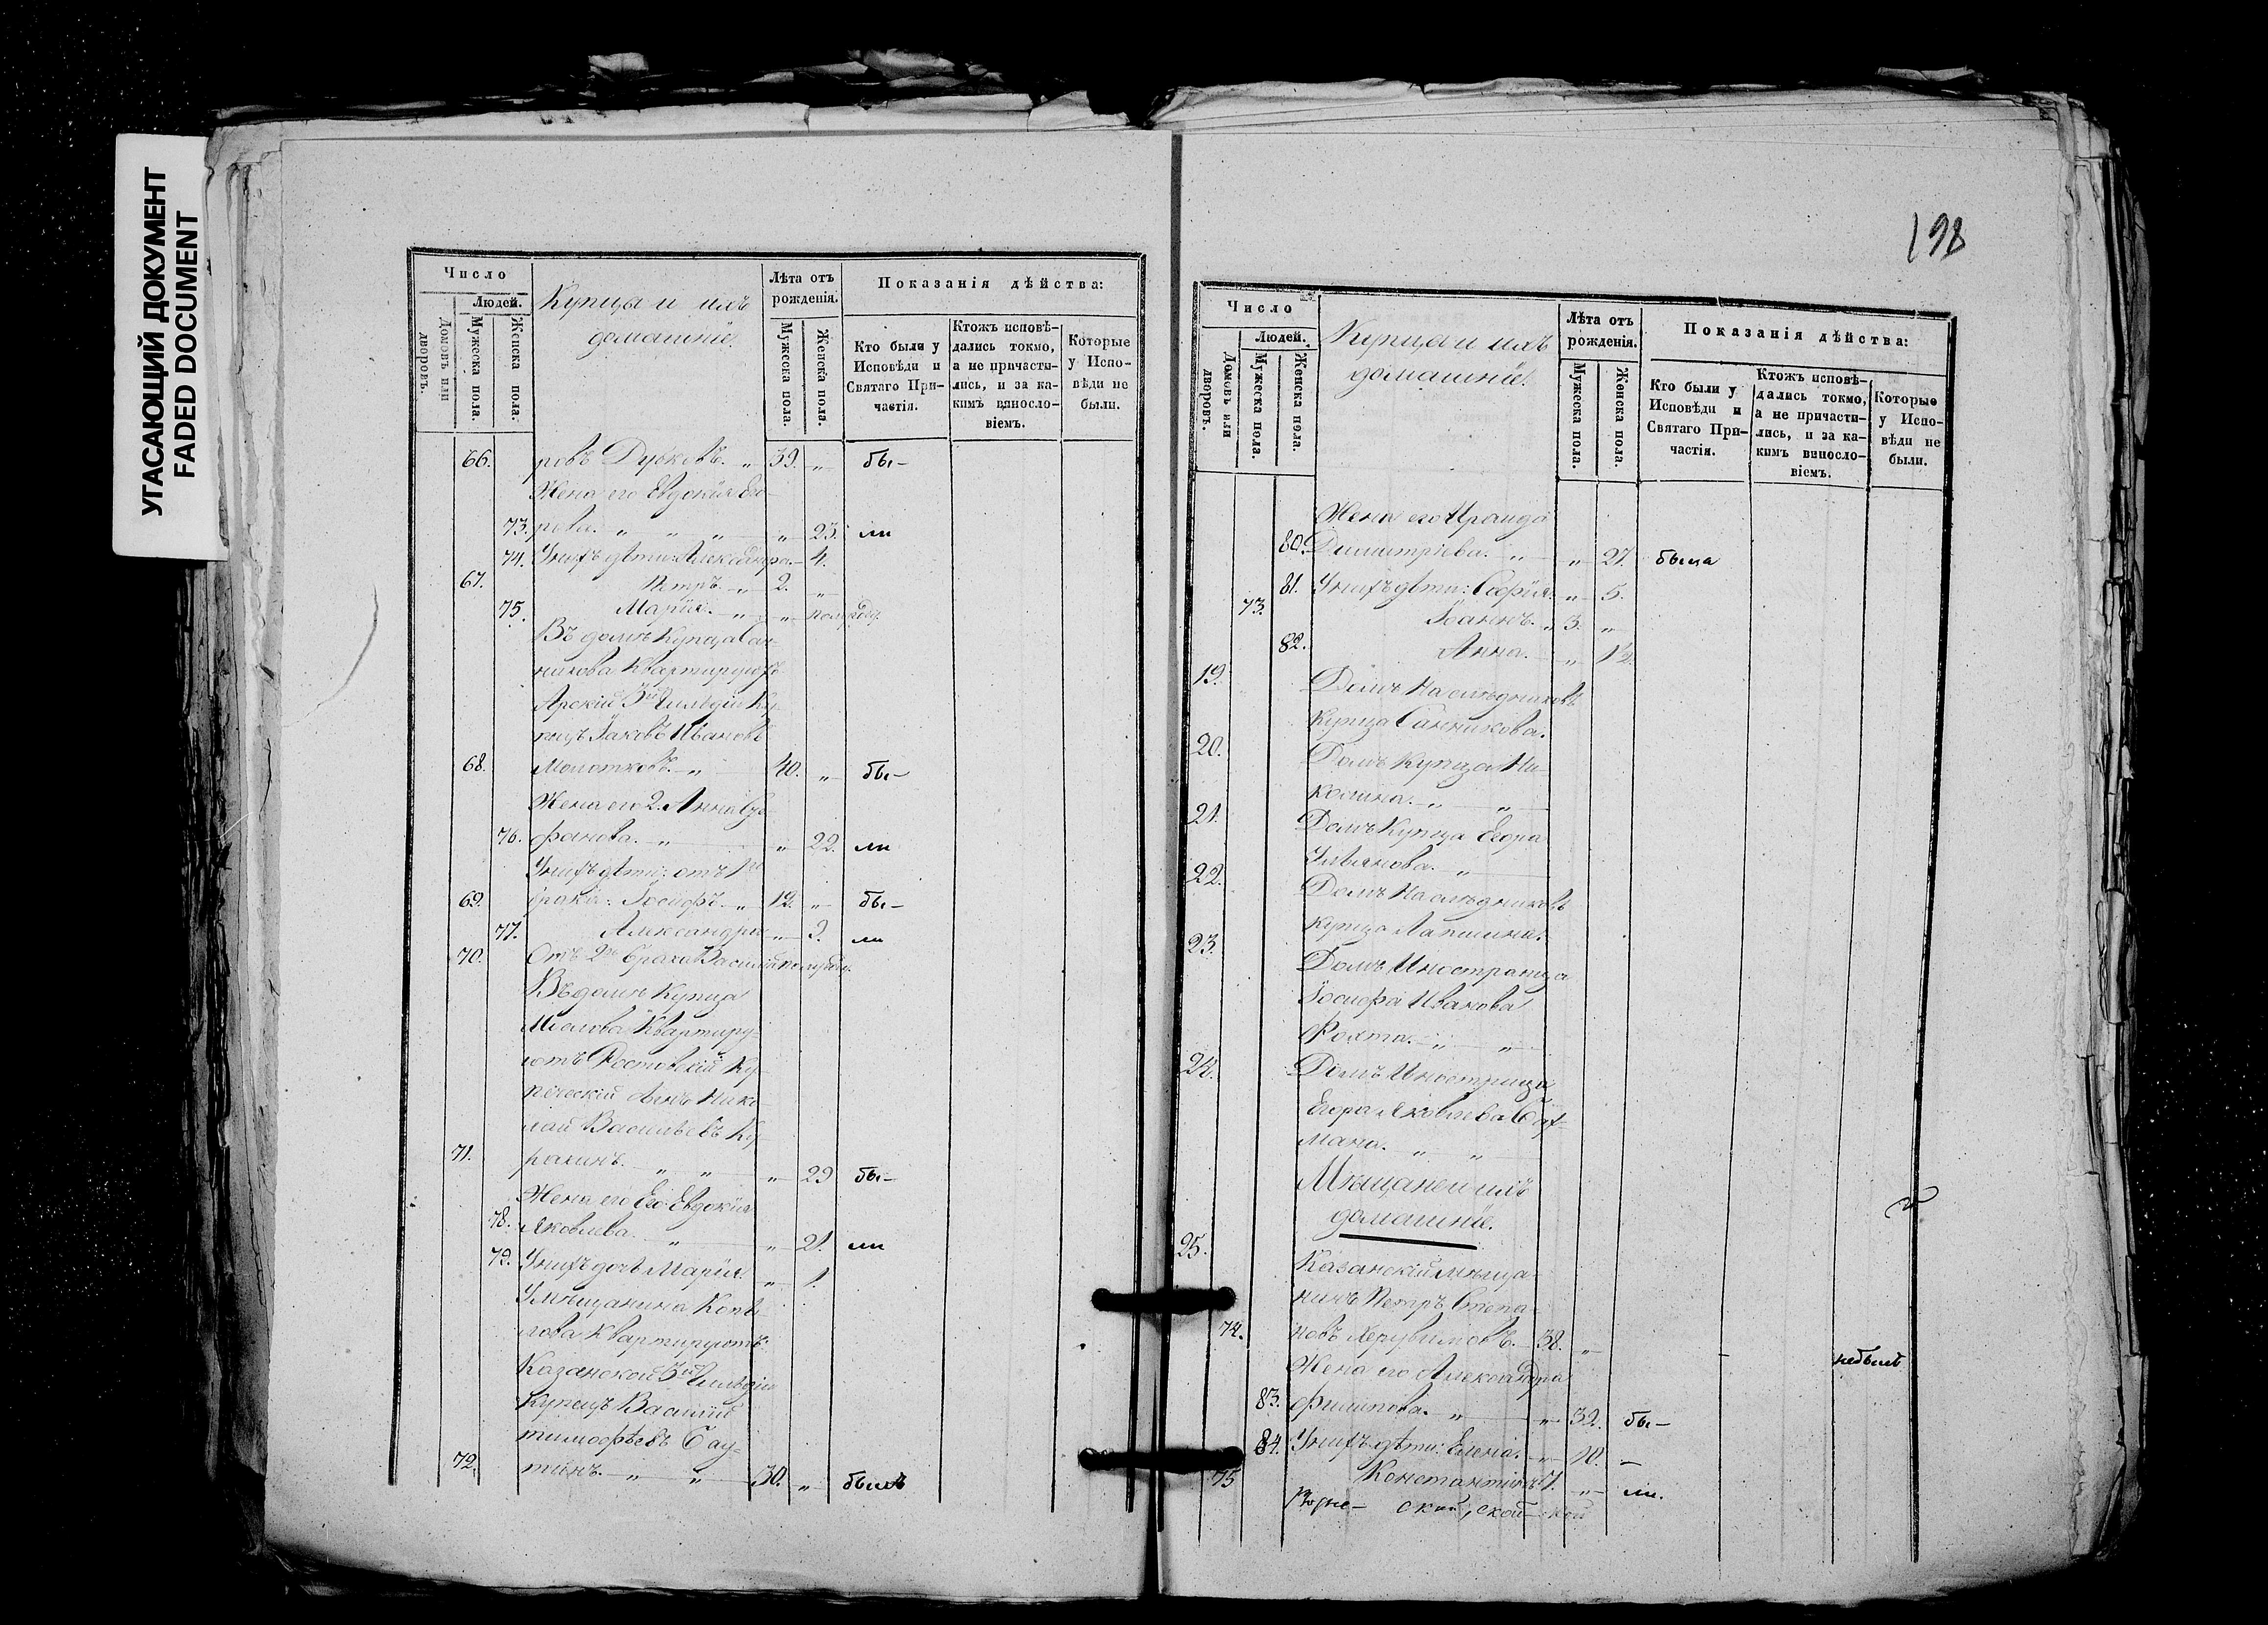 УГАСАЮЩИЙ ДОКУМЕНТ
FADED DOCUMENT
Число
Людей.
Домовъ или дворовъ.
Мужеска пола.
Женска пола.
Купцы и ихъ
домашніе.
Лѣта отъ
рожденія.
Мужеска пола.
Женска пола.
Показанія дѣйства:
Кто были у
Исповѣди и
Святаго При-
частія.
Ктожъ исповѣ-
дались токмо,
а не причасти-
лись, и за ка-
кимъ виносло-
віемъ.
Которые
у Испо-
вѣди не
были.
66. ровъ Дубковъ. „ 39. „ бы-
Жена его Евдокія Его-
73. рова. „ „ „ „ 23. ли
74. У нихъ дѣти: Александра. 4.
67. Петръ. „ 2. „
75. Марія. „ „ полугоду
Въ домѣ Купца Сан-
никова Квартируетъ
Арскій 3й Гильдіи Ку-
пецъ Іаковъ Ивановъ
68. Молотковъ. „ 40. „ бы-
Жена его 2. Анна Сте-
76. фанова. „ „ 22. ли
У нихъ дѣти: отъ 1го
69. брака: Іосифъ. „ 12. „ бы-
77. Александра „ 9. ли
70. Отъ 2го брака Василій полугода.
Въ домѣ Купца
Квартиру-
ютъ Ростовскій Ку-
печескій сынъ Нико-
лай Васильевъ Ку-
71. рахинъ. „ „ „ 29 бы-
Жена его Его Евдокія
78. Яковлева. „ „ 21. ли
79. У нихъ дочь Марія. „ 1.
У мѣщанина Копы-
лова Квартируютъ:
Казанской 3й Гильдіи
Купецъ Василій
тимофѣевъ Бау-
72. тинъ. „ „ 30. „ былъ
198
Число
Людей.
Домовъ или дворовъ.
Мужеска пола.
Женска пола.
Купцы и ихъ
домашніе.
Лѣта отъ
рожденія.
Мужеска пола.
Женска пола.
Показанія дѣйства:
Кто были у
Исповѣди и
Святаго При-
частія.
Ктожъ исповѣ-
дались токмо,
а не причасти-
лись, и за ка-
кимъ виносло-
віемъ.
Которые
у Испо-
вѣди не
были.
Жена его Ираида
80. Димитріева. „ „ 27. была
81. У нихъ дѣти: Софія. „ 5.
73. Іоаннъ. „ 3. „
82. Анна. „ 1½.
19. Домъ Наслѣдниковъ
Купца Санникова.
20. Домъ Купца Ни-
колина. „ „
21. Домъ Купца Егора
Ульянова. „
22. Домъ Наслѣдниковъ
Купца Лапшина.
23. Домъ Иностранца
Іосифа Иванова
Фохта. „ „
24. Домъ Иностранца
Егора Яковлева Бах-
мана. „ „
Мѣщане и ихъ
домашніе.
25. Казанскій мѣща-
нинъ Петръ Степа-
74. новъ Херувимовъ. 38. „ небылъ
Жена его Александра
83. Филипова. „ „ 32. бы-
84. У нихъ дѣти: Елена. „ 10. –
75 Константинъ 7. „ ли.
ской, ской